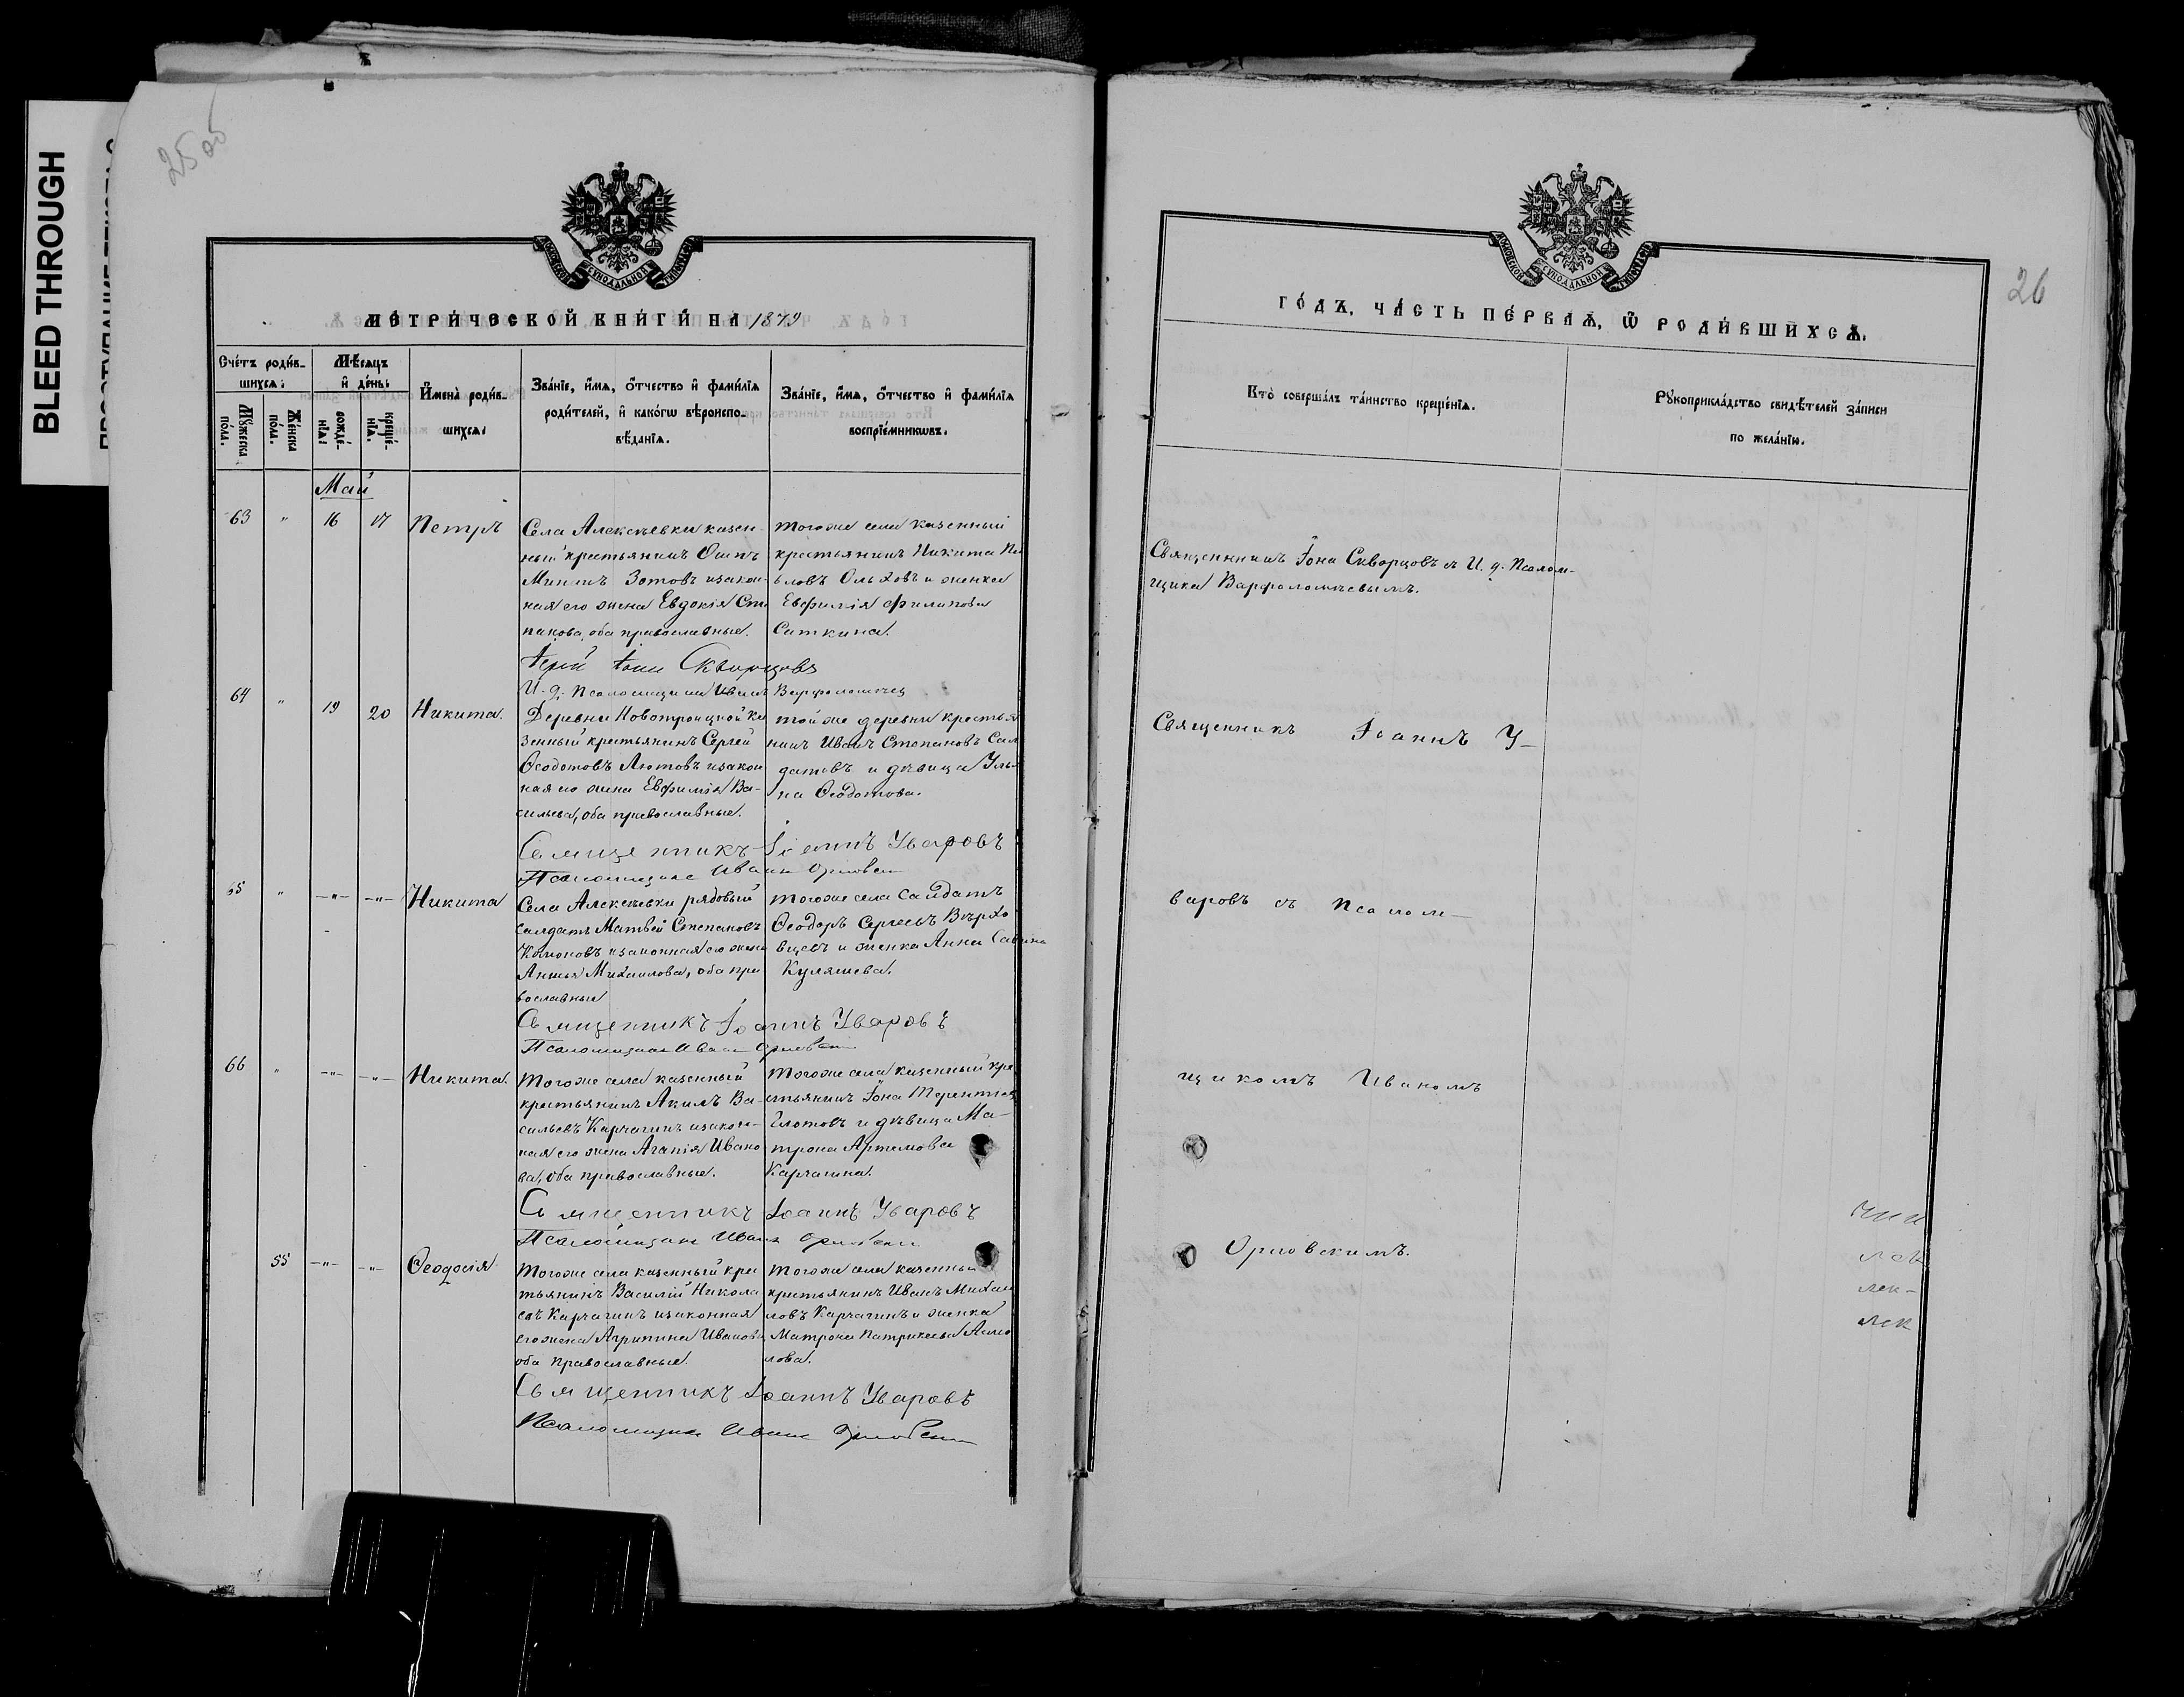 BLEED THROUGH
25 об
МОСКОВСКОЙ СУНОДАЛЬНОЙ ТИПОГРАФІИ
МЕТРИ́ЧЕСКОЙ КНИ́ГИ НА 1879
Сче́тъ роди́в-
шихся:
Мꙋ́жеска по́ла.
Же́нска по́ла.
Мѣ́сяцъ
и҆ де́нь:
рожде́-
нїя:
креще́-
нїя.
И҆мена̀ роди́в-
шихся:
Зва́нїе, и҆́мя, ѻ҆́тчество и҆ фами́лїя
роди́телей, и҆ како́гѡ вѣроиспо-
вѣ́данїя.
Зва́нїе, и҆́мя, ѻ҆́тчество и҆ фами́лїя
воспрїе́мникѡвъ.
Май
63 " 16 17 Петръ
Села Алексѣевки казен-
ный крестьянинъ Осипъ
Мининъ Зотовъ и закон-
ная его жена Евдокія Сте
панова, оба православные.
Тогоже села казенный
крестьянинъ Никита Па
вловъ Ольховъ и женка
Евфимія Филипова
Саткина.
Іерей Іона Скворцовъ
И. д. Псаломщика Иванъ Варфоломѣевъ
64 " 19 20 Никита.
Деревни Новотроицкой Ка
зенный крестьянинъ Сергей
Ѳеодотовъ Лютовъ и закон
ная его жена Евфимія Ва-
сильева, оба православные.
той же деревни крестья
нинъ Иванъ Степановъ Сал
датовъ и дѣвица Улья
на Ѳеодотова.
Священникъ Іоаннъ Уваровъ
Псаломщикъ Иванъ Орловскій
65 " —"— —"— Никита
Села Алексѣевки рядовый
салдатъ Матвей Степановъ
и законная его жена
Михаилова, оба пра-
вославные
тогоже села Салдатъ
Ѳеодоръ Сергеевъ Верхо
вцевъ и женка Анна Савина
Куляшева.
Священникъ Іоаннъ Уваровъ
Псаломщикъ Иванъ Орловскій
66 " —"— —"— Никита.
Тогоже села казенный
крестьянинъ Акимъ Ва-
сильевъ Карчагинъ и закон-
ная его жена Агапія Ивано
ва, оба православные.
Тогоже села казенный кре
стьянинъ Іона Терентьев
и дѣвица Ма-
трона Артемова
Карчагина.
Священникъ Іоаннъ Уваровъ
Псаломщикъ Иванъ Орловскій
55 —"— —"— Ѳеодосія
Тогоже села казенный крес
тьянинъ Василій Никола
евъ Карчагинъ и законная
его жена Агрипина Иванова
оба православные.
Тогоже села казенный
крестьянинъ Иванъ Михаи
ловъ Карчагинъ и женка
Матрона Патрикеева
лова.
Священникъ Іоаннъ Уваровъ
Псаломщикъ Иванъ Орловскій
26
МОСКОВСКОЙ СУНОДАЛЬНОЙ ТИПОГРАФІИ
ГО́ДЪ, ЧА́СТЬ ПЕ́РВАЯ, Ѽ РОДИ́ВШИХСЯ.
Кто̀ соверша́лъ та́инство креще́нїя.
Рꙋкоприкла́дство свидѣ́телей за́писи
по жела́нїю.
Священникъ Іона Скворцовъ съ И. д. Псалом-
щика Варфоломѣевымъ.
Священникъ Іоаннъ У-
варовъ съ псалом-
щикомъ Иваномъ
Орловскимъ.